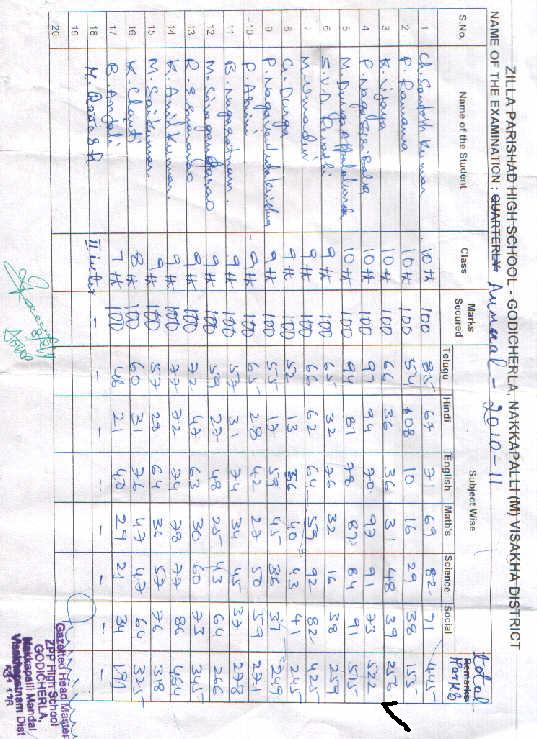 ZILLA PARISHAD HIGH SCHOOL - GODICHERLA, NAKKAPALLI (M) VISAKHA DISTRICT
NAME OF THE EXAMINATION : QUARTERLY Annual - 2010-11
S.No. Name of the Student Class Marks Secured Subject Wise Total Marks Remarks
Telugu Hindi English Math's Science Social
1 Ch. Santosh Kumar 10th 100 85 67 71 69 82 71 445
2 P. Ramana 10th 100 54 08 10 16 29 38 155
3 K. Vijaya 10th 100 66 36 36 31 48 39 256
4 P. Naga 10th 100 97 94 70 97 91 73 522
5 M. Durga Appalakonda 10th 100 94 81 78 87 84 91 515
6 S.V.D. Revathi 9th 100 65 32 76 32 16 38 259
7 M. Umadevi 9th 100 66 62 64 59 92 82 425
8 G. Durga 9th 100 52 13 56 40 43 41 245
9 P. 9th 100 55 17 59 45 36 37 249
10 P. 9th 100 65 28 42 27 50 59 271
11 B. Nagaratnam 9th 100 57 31 74 34 45 37 278
12 M. Sivagangarao 9th 100 59 27 48 25 43 64 266
13 R. Eswararao 9th 100 72 47 63 30 60 73 345
14 K. Anil Kumar 9th 100 77 72 74 78 77 86 464
15 M. Saikumar 9th 100 57 29 64 36 57 76
16 K. Chanti 8th 100 60 31 76 47 47 64 325
17 B. Anjali 7th 100 48 21 40 27 21 34 191
18 M. II inter - - - - - - - -
19
20
Gazetted Head Master
ZPP High School
GODICHERLA,
Nakkapalli Mandal
Visakhapatnam Dist